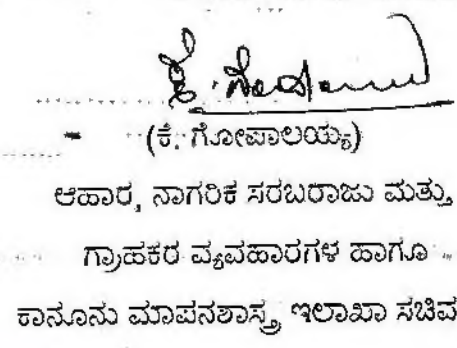 (ಕೆ. ಗೋಪಾಲಯ್ಯ)
ಆಹಾರ, ನಾಗರಿಕ ಸರಬರಾಜು ಮತ್ತು
ಗ್ರಾಹಕರ ವ್ಯವಹಾರಗಳ ಹಾಗೂ
ಕಾನೂನು ಮಾಪನಶಾಸ್ತ್ರ ಇಲಾಖಾ ಸಚಿವ